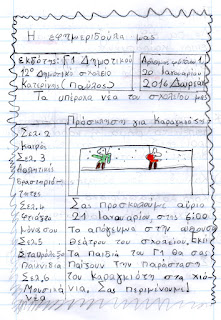 Η εφημεριδούλα μας
εκδότης: Γ1 Δημοτικού
12ο Δημοτικό σχολείο
Κατερίνης (Παύλος)
Αριθμός φύλλου 1
20 Ιανουαρίου
2016 Δωρεάν
Τα υπέροχα νέα του σχολείου μας
Πρόσκληση για Καραγκιόζη
Σελ. 2
Καιρός
Σελ. 3
Αθλητικές
δραστηριό-
τητες
Σελ. 4
Φτιάχνω
μόνος μου
Σελ. 5
Σταυρόλεξο
Παιχνίδια
Σελ. 6
Μουσικά
νέα
Σας προσκαλούμε αύριο
21 Ιανουαρίου, στις 6:00
Το απόγευμα στην αίθουσα
Θεάτρου του σχολείου, εκεί
Τα παιδιά του Γ1 θα σας
παίξουν την παράσταση
του Καραγκιόζη στα χιό-
νια, Σας περιμένουμε!